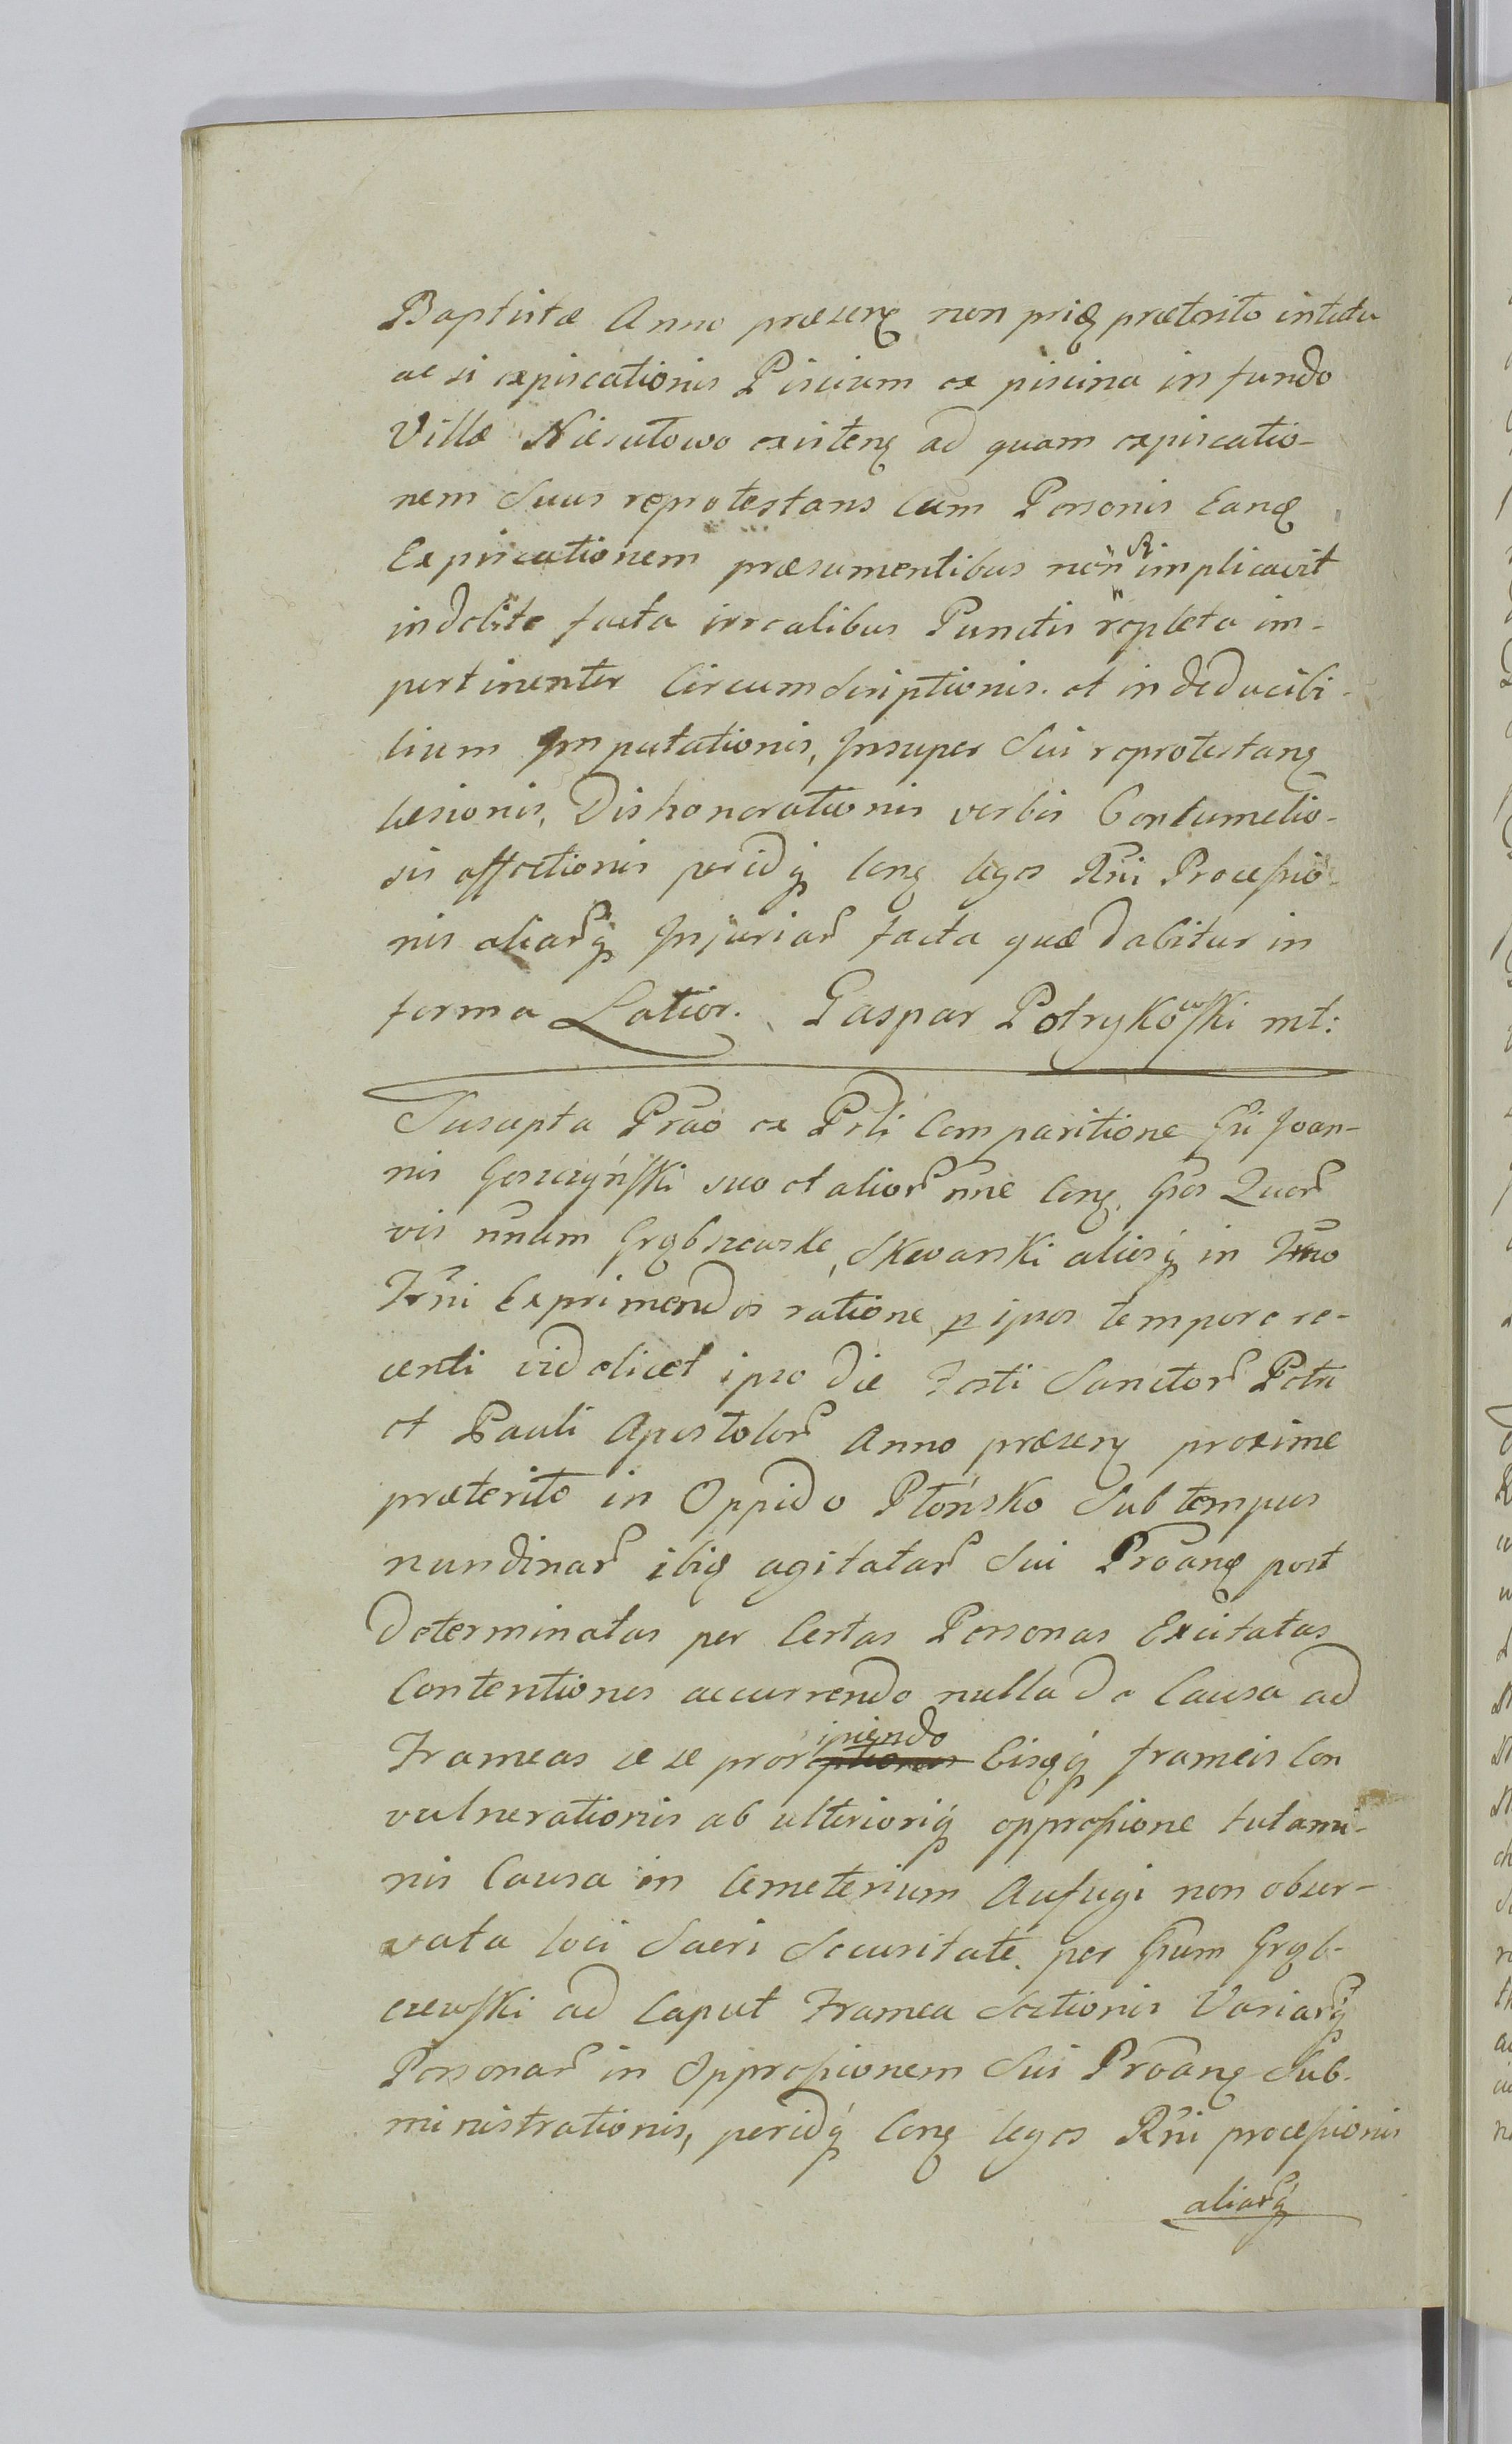 Baptistæ Anno præsenꝫ non priꝫ præterito intuitu
ac si expiscationis Piscium ex piscina in fundo
Villæ Niesutowo existenꝫ ad quam expiscatio-
nem Suus reprotestans cum Personis Eanꝫ
Expiscationem præsumentibus non se implicavit
indebite facta irrealibus Punctis repleta im-
pertinenter Circumscriptionis. et indeducibi-
lium Imputationis, Insuper Sui reprotestanꝫ
læsionis, Dishonorationis verbis Contumelio-
sis affectionis peridq̃ Conꝫ leges Rni Processio-
nis aliarq̃ Injuriar̃ facta quæ dabitur in
forma Latior. Gaspar Potrykowski mt:
Suscepta Prao̅ ex Prli Comparitione Gsi Joan-
nis Goszczyński suo et alior̃ nne Conꝫ. Gsos Quor̃
vis nnum Grąbczewski, Skwarski aliosq̃ in Trno
Trni Exprimendos ratione p ipsos tempore re-
centi videlicet ipso die Festi Sanctor̃ Petri
et Pauli Apostolor̃ Anno præsenꝫ proxime
præterito in Oppido Płońsko Sub tempus
nundinar̃ ibiꝫ agitatar̃ Sui Proanꝫ post
determinatas per Certas Personas Excitatas
Contentiones accurrendo nulla de Causa ad
Frameas se se proripiendo Eisqꝫ frameis Con
vulnerationis ab ulterioriq̃ oppressione tutami-
nis Causa in Cemeterium Aufugi non obser-
vata loci Sacri Securitate. per Gsum Grąb-
czewski ad Caput Framea Sectionis Variarq̃
Personar̃ in Oppressionem Sui Proanꝫ Sub-
ministrationis, peridq̃ Conꝫ leges Rni processionis
aliarq̃